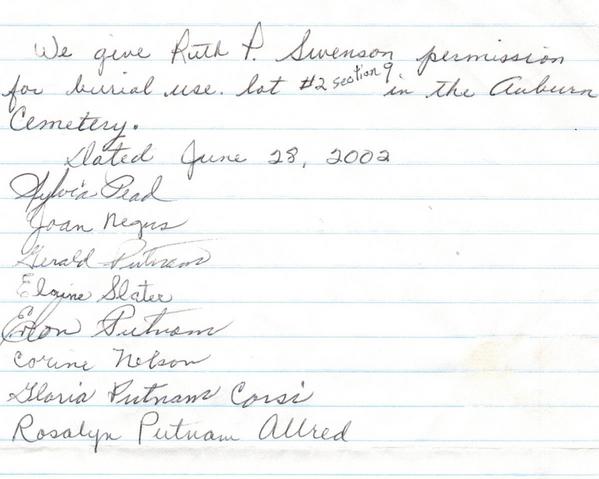 We give Ruth P. Swenson permission
for burial use. lot #2 section 9 in the Auburn
Cemetery.
Dated June 28, 2002
Sylvia Read
Joan Negus
Gerald Putnam
Elaine Slater
Putnam
Corine Nelson
Gloria Putnam Corsi
Rosalyn Putnam Allred